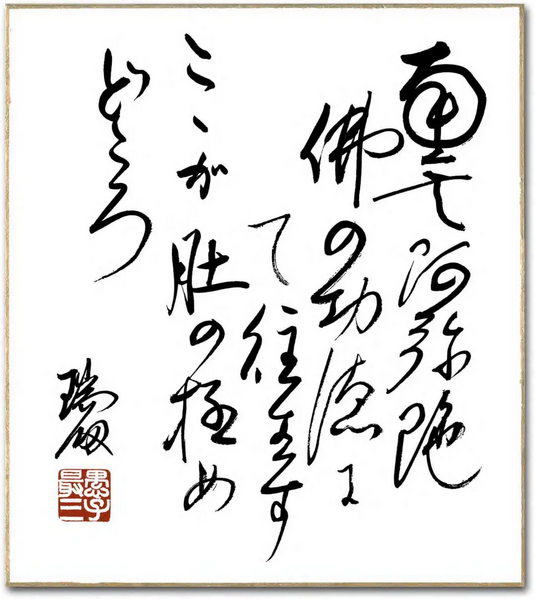 南無阿弥陀
佛の功徳に
て往生す
ここが肚の極め
どころ
瑞劔